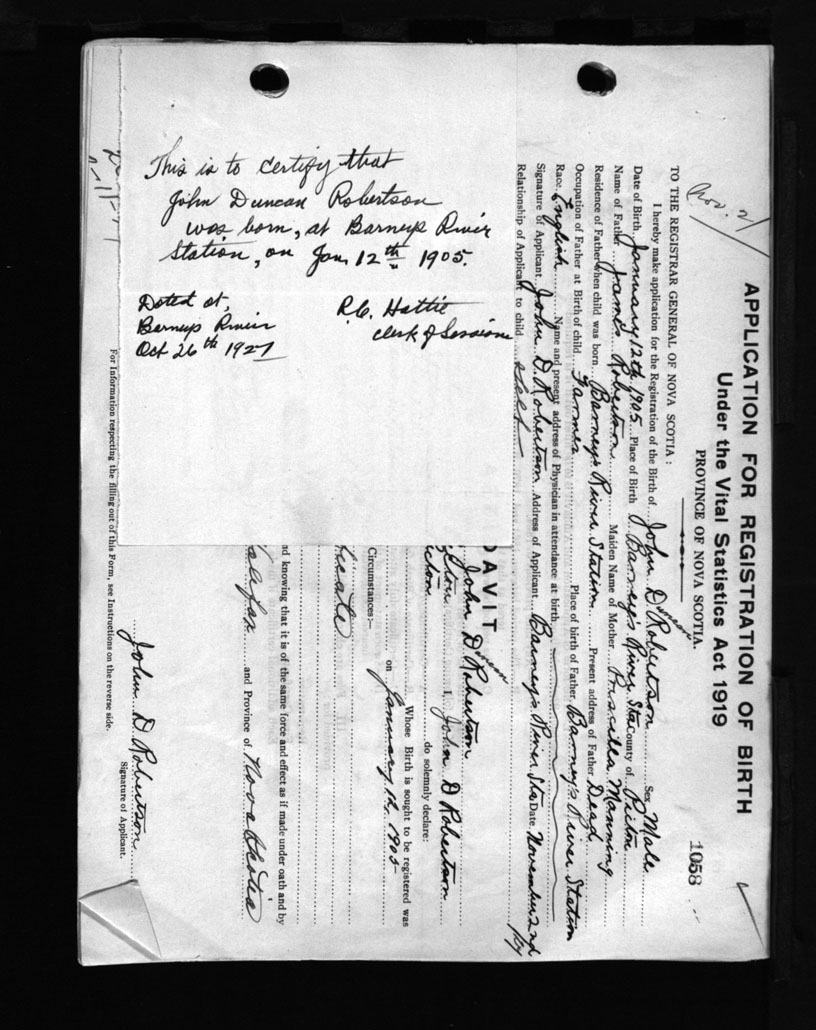 This is to certify that
John Duncan Robertson
was born, at Barneys River
Station, on Jan. 12th 1905.
Dated at,
Barneys River
Oct 26th 1927
R.C. Hattie
Clerk of Sessions
Nov. 2/
1058
APPLICATION FOR REGISTRATION OF BIRTH
Under the Vital Statistics Act 1919
PROVINCE OF NOVA SCOTIA.
TO THE REGISTRAR GENERAL OF NOVA SCOTIA:
I hereby make application for the Registration of the Birth of John Duncan Robertson Sex Male
Date of Birth January 12th 1905 Place of Birth Barney's River Sta County of Pictou
Name of Father James Robertson Maiden Name of Mother Priscilla Manning
Residence of Father when child was born Barney's River Station Present address of Father Dead
Occupation of Father at Birth of child Farmer Place of birth of Father Barney's River Station
Race English Name and present address of Physician in attendance at birth
Signature of Applicant John D. Robertson Address of Applicant Barney's River Sta Date November 2nd
Relationship of Applicant to child Self
DAVIT
John Duncan Robertson
I, John D Robertson
do solemnly declare:
Whose Birth is sought to be registered was
on January 12, 1905
Circumstances:—
ificate
nd knowing that it is of the same force and effect as if made under oath and by
Halifax and Province of Nova Scotia
John D Robertson
Signature of Applicant.
For Information respecting the filling out of this Form, see Instructions on the reverse side.